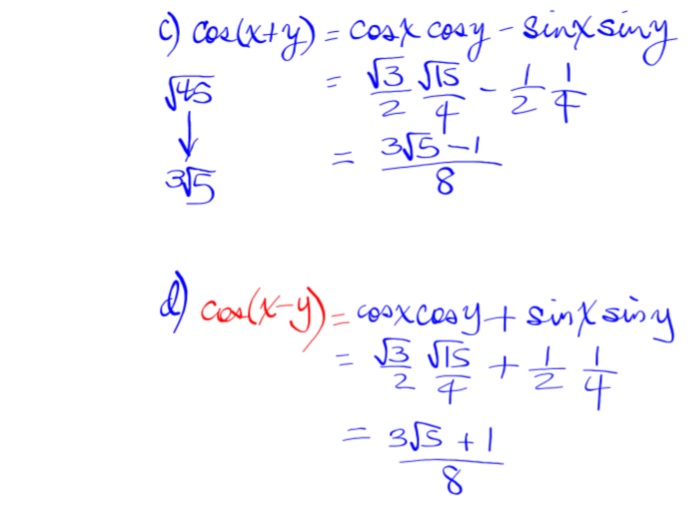 c) cos(x+y) = cosx cosy - sinx siny
√45 = √3/2 √15/4 - 1/2 1/4
↓
3√5 = 3√5-1/8
d) cos(x-y) = cosx cosy + sinx siny
= √3/2 √15/4 + 1/2 1/4
= 3√5+1/8